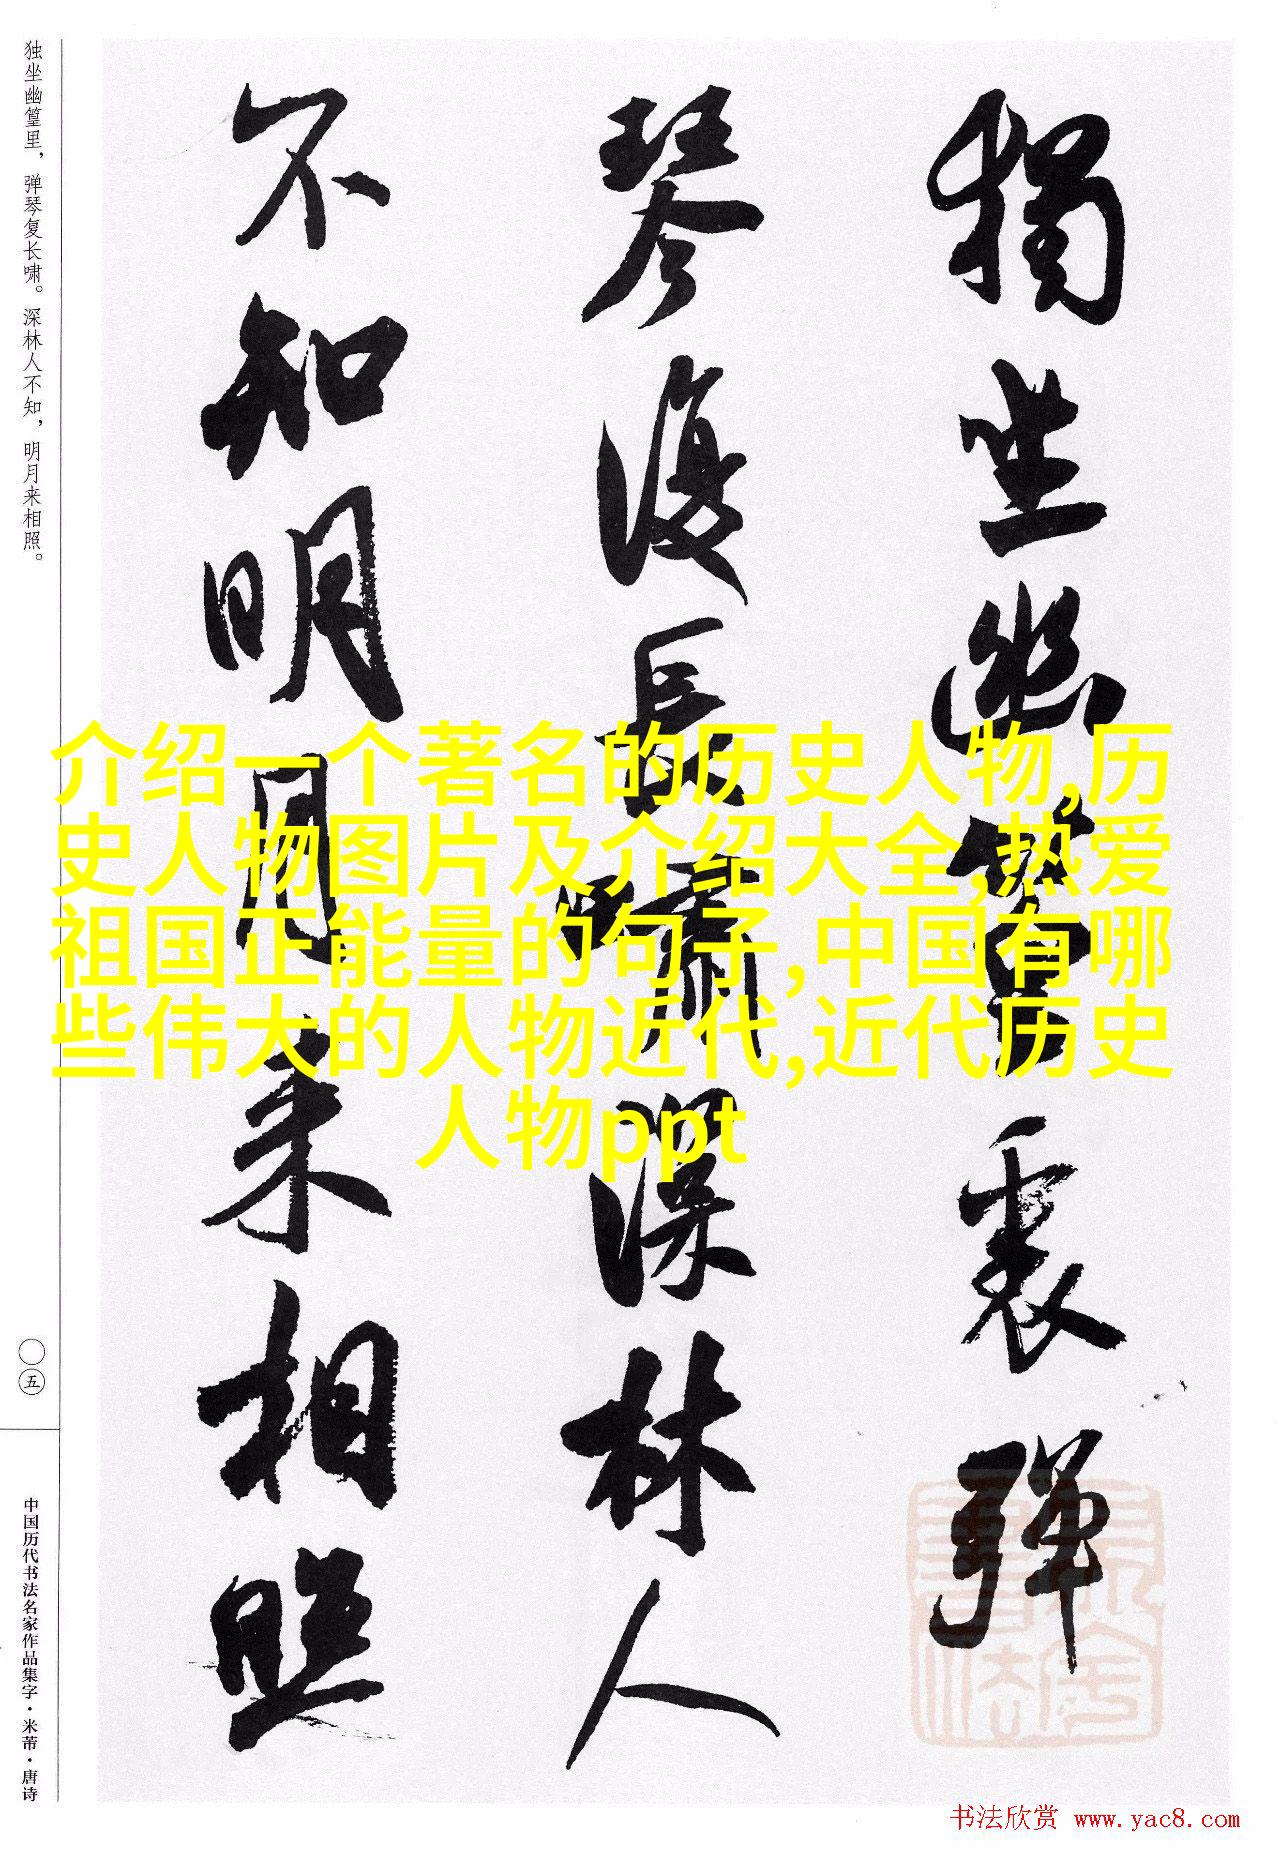 獨坐幽篁裏彈
琴復長嘯深林人
不知明月来相照
独坐幽篁里，弹琴复长啸。深林人不知，明月来相照。
〇五
中国历代书法名家作品集字·米芾·唐诗
介绍一个著名的历史人物,历
史人物图片及介绍大全,热爱
祖国正能量的句子,中国有哪
些伟大的人物近代,近代历史
人物ppt
书法欣赏 www.yac8.com